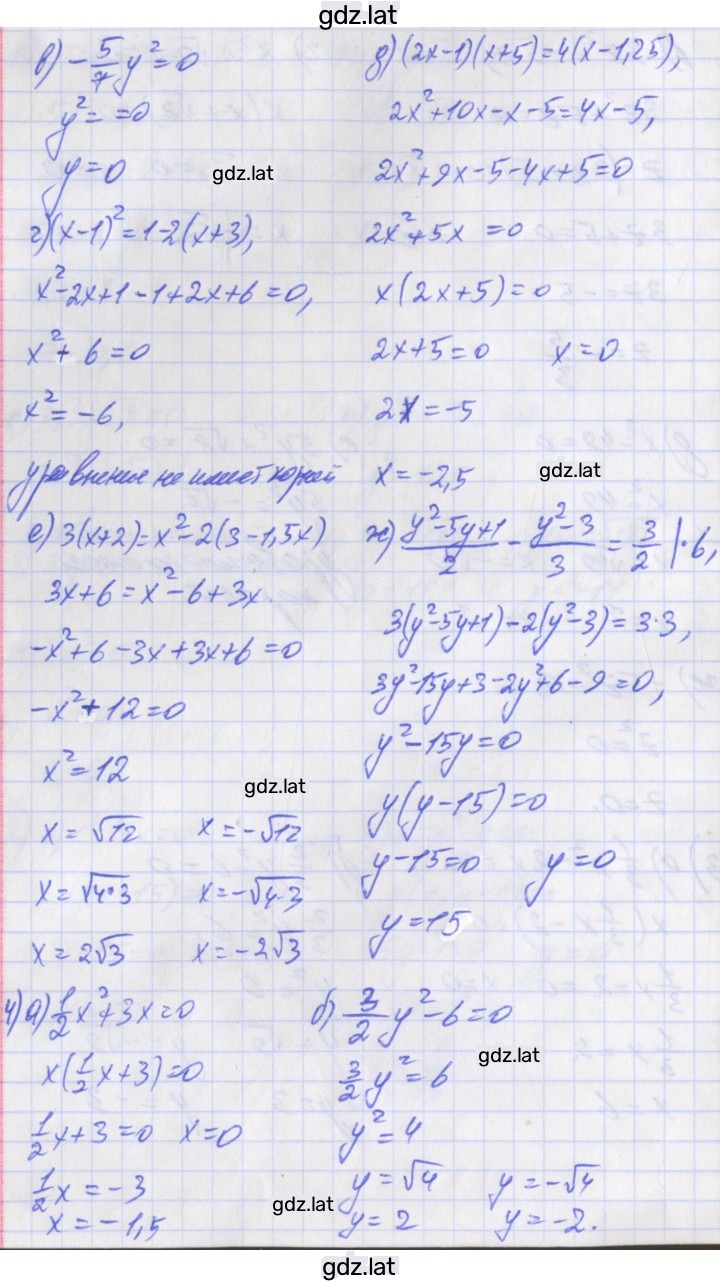 gdz.lat
в) -5/7 y² = 0
y² = =0
y = 0
г) (x-1)² = 1-2(x+3),
x²-2x+1-1+2x+6=0,
x²+6=0
x²=-6,
уравнение не имеет корней
д) (2x-1)(x+5)=4(x-1,25),
2x²+10x-x-5=4x-5,
2x²+9x-5-4x+5=0
2x²+5x =0
x(2x+5)=0
2x+5=0 x=0
2x=-5
x=-2,5
gdz.lat
gdz.lat
е) 3(x+2)=x²-2(3-1,5x)
3x+6=x²-6+3x
-x²+6-3x+3x+6=0
-x²+12=0
x²=12
gdz.lat
x=√12 x=-√12
x=√4·3 x=-√4·3
x=2√3 x=-2√3
ж) (y²-5y+1)/2 - (y²-3)/3 = 3/2 |·6,
3(y²-5y+1)-2(y²-3)=3·3,
3y²-15y+3-2y²+6-9=0,
y²-15y=0
y(y-15)=0
y-15=0 y=0
y=15
4) а) 1/2 x²+3x=0
x(1/2 x+3)=0
1/2 x+3=0 x=0
1/2 x=-3
x=-1,5
б) 3/2 y²-6=0
3/2 y²=6
gdz.lat
y²=4
y=√4 y=-√4
y=2 y=-2.
gdz.lat
gdz.lat